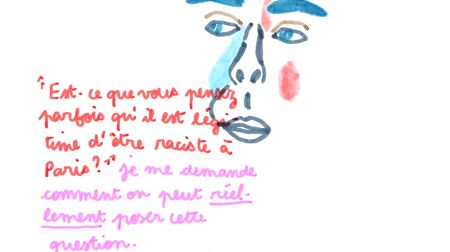 "Est-ce que vous pensez
parfois qu'il est légi
time d'être raciste à
Paris?" je me demande
comment on peut réel-
lement poser cette
question.